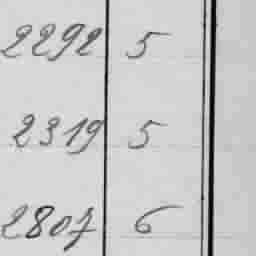 2292 5
2319 5
2807 6